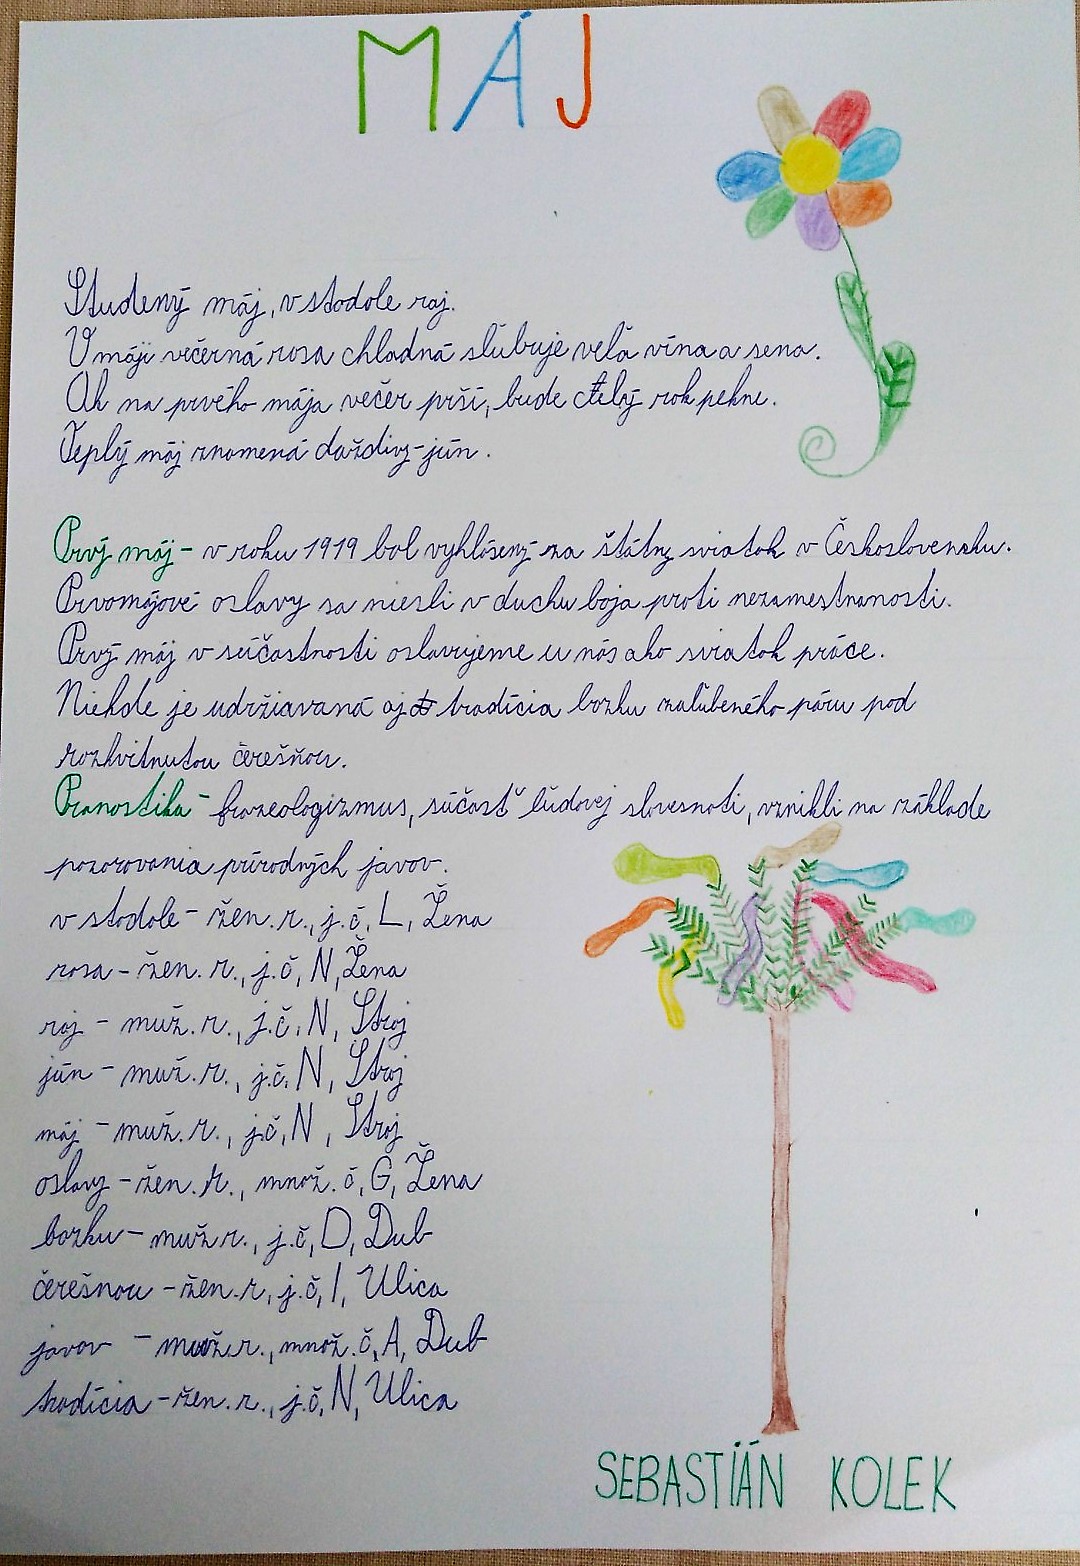 MÁJ
Studený máj, v stodole raj.
V máji večerná rosa chladná sľubuje veľa vína a sena.
Ak na prvého mája večer prší, bude celý rok pekne.
Teplý máj znamená daždivý jún.
Prvý máj - v roku 1919 bol vyhlásený za štátny sviatok v Československu.
Prvomájové oslavy sa niesli v duchu boja proti nezamestnanosti.
Prvý máj v súčastnosti oslavujeme u nás ako sviatok práce.
Niekde je udržiavaná aj tradícia bozku zaľúbeného páru pod
rozkvitnutou čerešňou.
Pranostika - frazeologizmus, súčasť ľudovej slovesnoti, vznikli na základe
pozorovania prírodných javov.
v stodole - žen. r., j. č, L, Žena
rosa - žen. r., j. č, N, Žena
raj - muž. r., j. č. N, Stroj
jún - muž. r., j. č. N, Stroj
máj - muž. r., j. č, N, Stroj
oslavy - žen. r., množ. č, G, Žena
bozku - muž. r., j. č, D, Dub
čerešnou - žen. r, j. č, I, Ulica
javov - muž. r., množ. č, A, Dub
tradícia - žen. r., j. č, N, Ulica
SEBASTIÁN KOLEK